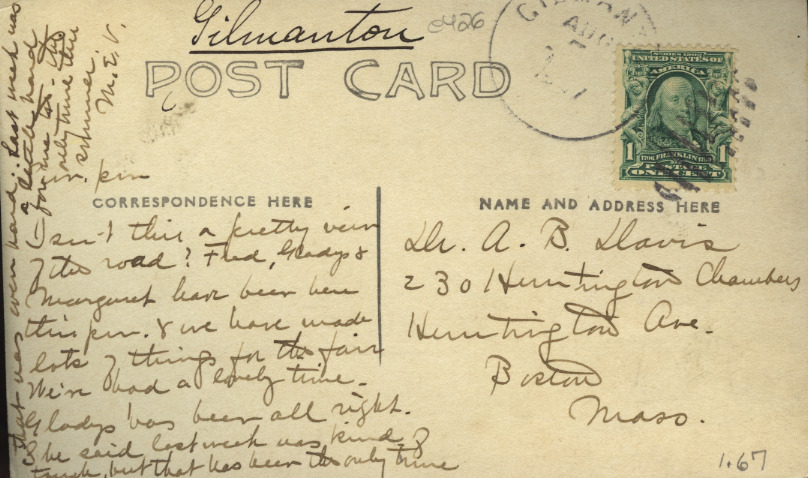 Gilmanton
0426
POST CARD
GILMAN
AUG
7
SERIES 1902
UNITED STATES OF
AMERICA
1
1
1706 FRANKLIN 1790
POSTAGE
ONE CENT
CORRESPONDENCE HERE
Isn't this a pretty view
of the road? Fred, Gladys &
Margaret have been here
this p.m. & we have made
lots of things for the fair
We're had a lovely time.
Gladys has been all right.
She said last week was kind of
tough, but that has been the only time
that was even hard. Last week was
a little hard
for me too. The
only time this
summer.
M. E. V.
NAME AND ADDRESS HERE
Dr. A. B. Davis
230 Huntington Chambers
Huntington Ave.
Boston
Mass.
1.67